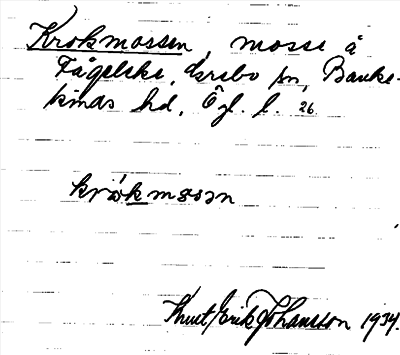 Krokmossen, mosse å
Fågeleke, Ekebo sn, Banke-
kinds hd, Ögl. l. 26
krókmosən
Knut Erik Johansson 1934.